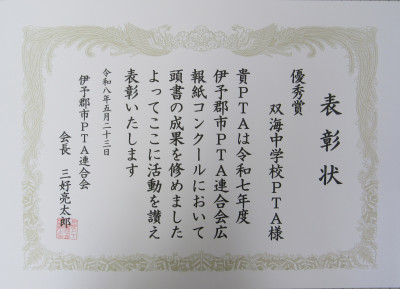 表彰状
優秀賞
双海中学校PTA様
貴PTAは令和七年度
伊予郡市PTA連合会広
報紙コンクールにおいて
頭書の成果を修めました
よってここに活動を讃え
表彰いたします
令和八年五月二十三日
伊予郡市PTA連合会
会長 三好亮太郎